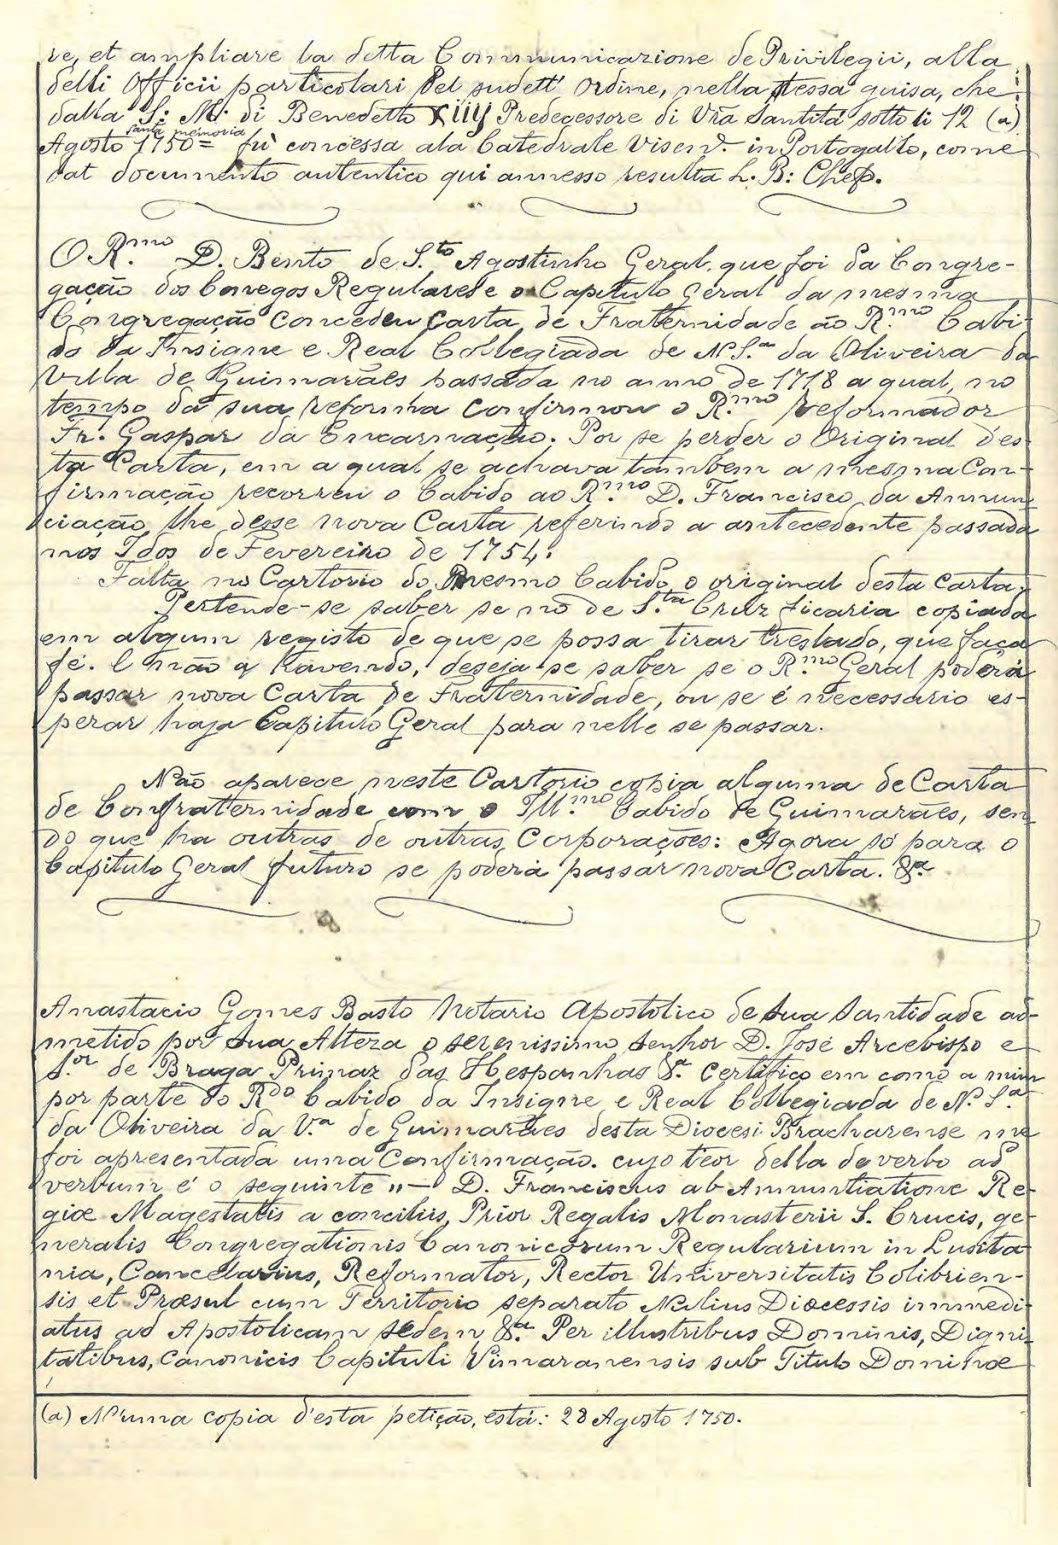 re, et ampliare la detta Communicazione de Privilegii, alla
delli Officii particolari del sudett' Ordine, nella stessa guisa, che
dalla S: M: di Benedetto XIIIJ Predecessore di Vrã Santitá sotto li 12 (a)
santa memoria
Agosto 1750= fù concessa ala Catedrale Visend. in Portogallo, come
dal documento autentico qui annesso resulta L. B: Chep.
O R.mo D. Bento de S.to Agostinho Geral, que foi da Congre-
gação dos Conegos Regulares e o Capitulo Geral da mesma
Congregação concedeu Carta de Fraternidade áo R.mo Cabi-
do da Insigne e Real Collegiada de N. S.a da Oliveira da
Villa de Guimarães passada no anno de 1718 a qual, no
tempo da sua reforma confirmou o R.mo reformador
Fr. Gaspar da Encarnação. Por se perder o Original des-
ta Carta, em a qual se achava tambem a mesma Con-
firmação recorreu o Cabido ao R.mo D. Francisco da Annun
ciação, lhe desse nova Carta referindo a antecedente passada
nos Idos de Fevereiro de 1754.
Falta no Cartorio do Mesmo Cabido o original desta Carta.
Pertende-se saber se no de S.ta Cruz ficaria copiada
em algum registo de que se possa tirar treslado, que faça
fé. E não q havendo, deseja-se saber se o R.mo Geral poderá
passar nova Carta de Fraternidade, ou se é necessario es-
perar haja Capitulo Geral para nelle se passar.
Não aparece neste Cartorio copia alguma de Carta
de Confraternidade com o Ill.mo Cabido de Guimarães, sen
do que ha outras de outras Corporações: Agora só para o
Capitulo Geral futuro se poderá passar nova Carta. &a
Anastacio Gomes Basto Notario Apostolico de Sua Santidade ad-
metido por Sua Alteza o serenissimo Senhor D. José Arcebispo e
S.or de Braga Primaz das Hespanhas &a. Certifico em como a mim
por parte do R.do Cabido da Insigne e Real Collegiada de N. S.a
da Oliveira da V.a de Guimarães desta Diocesi Bracharense me
foi apresentada uma Confirmação. cujo teor della de verbo ad
verbum é o seguinte „— D. Franciscus ab Annuntiatione Re-
giæ Magestatis a conciliis, Prior Regalis Monasterii S. Crucis, ge-
neralis Congregationis Canonicorum Regularium in Lusita
nia, Cancelarius, Reformator, Rector Universitatis Colibrien-
sis et Præsul cum Territorio separato Nulius Diocessis immedi
atus ad Apostolicam sedem, &a. Per illustribus Dominis, Digni
tatibus, Canonicis Capituli Vimaranensis sub Titulo Dominæ
(a) N'uma copia d'esta petição, está: 28 Agosto 1750.